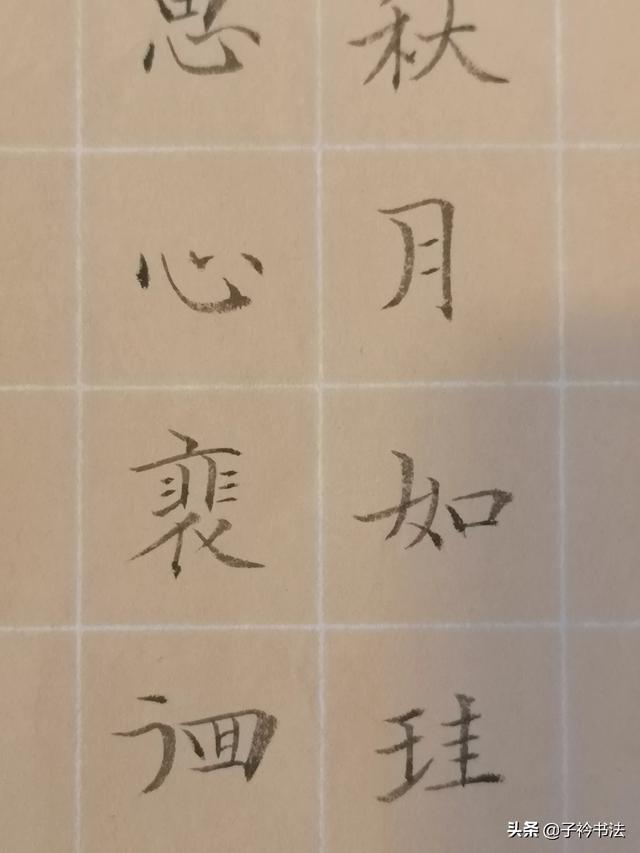 秋月如珪
思心裵徊
头条 @子衿书法